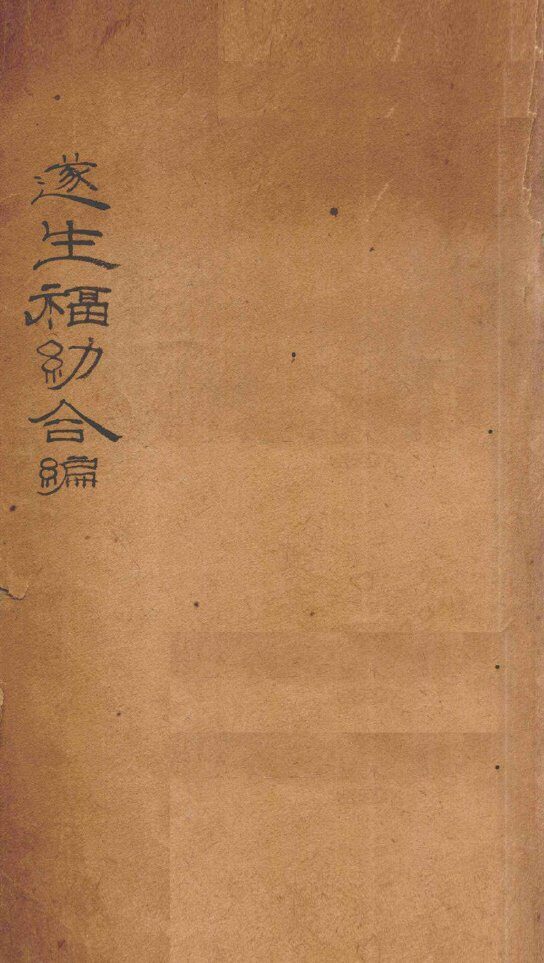 遂生福幼合編